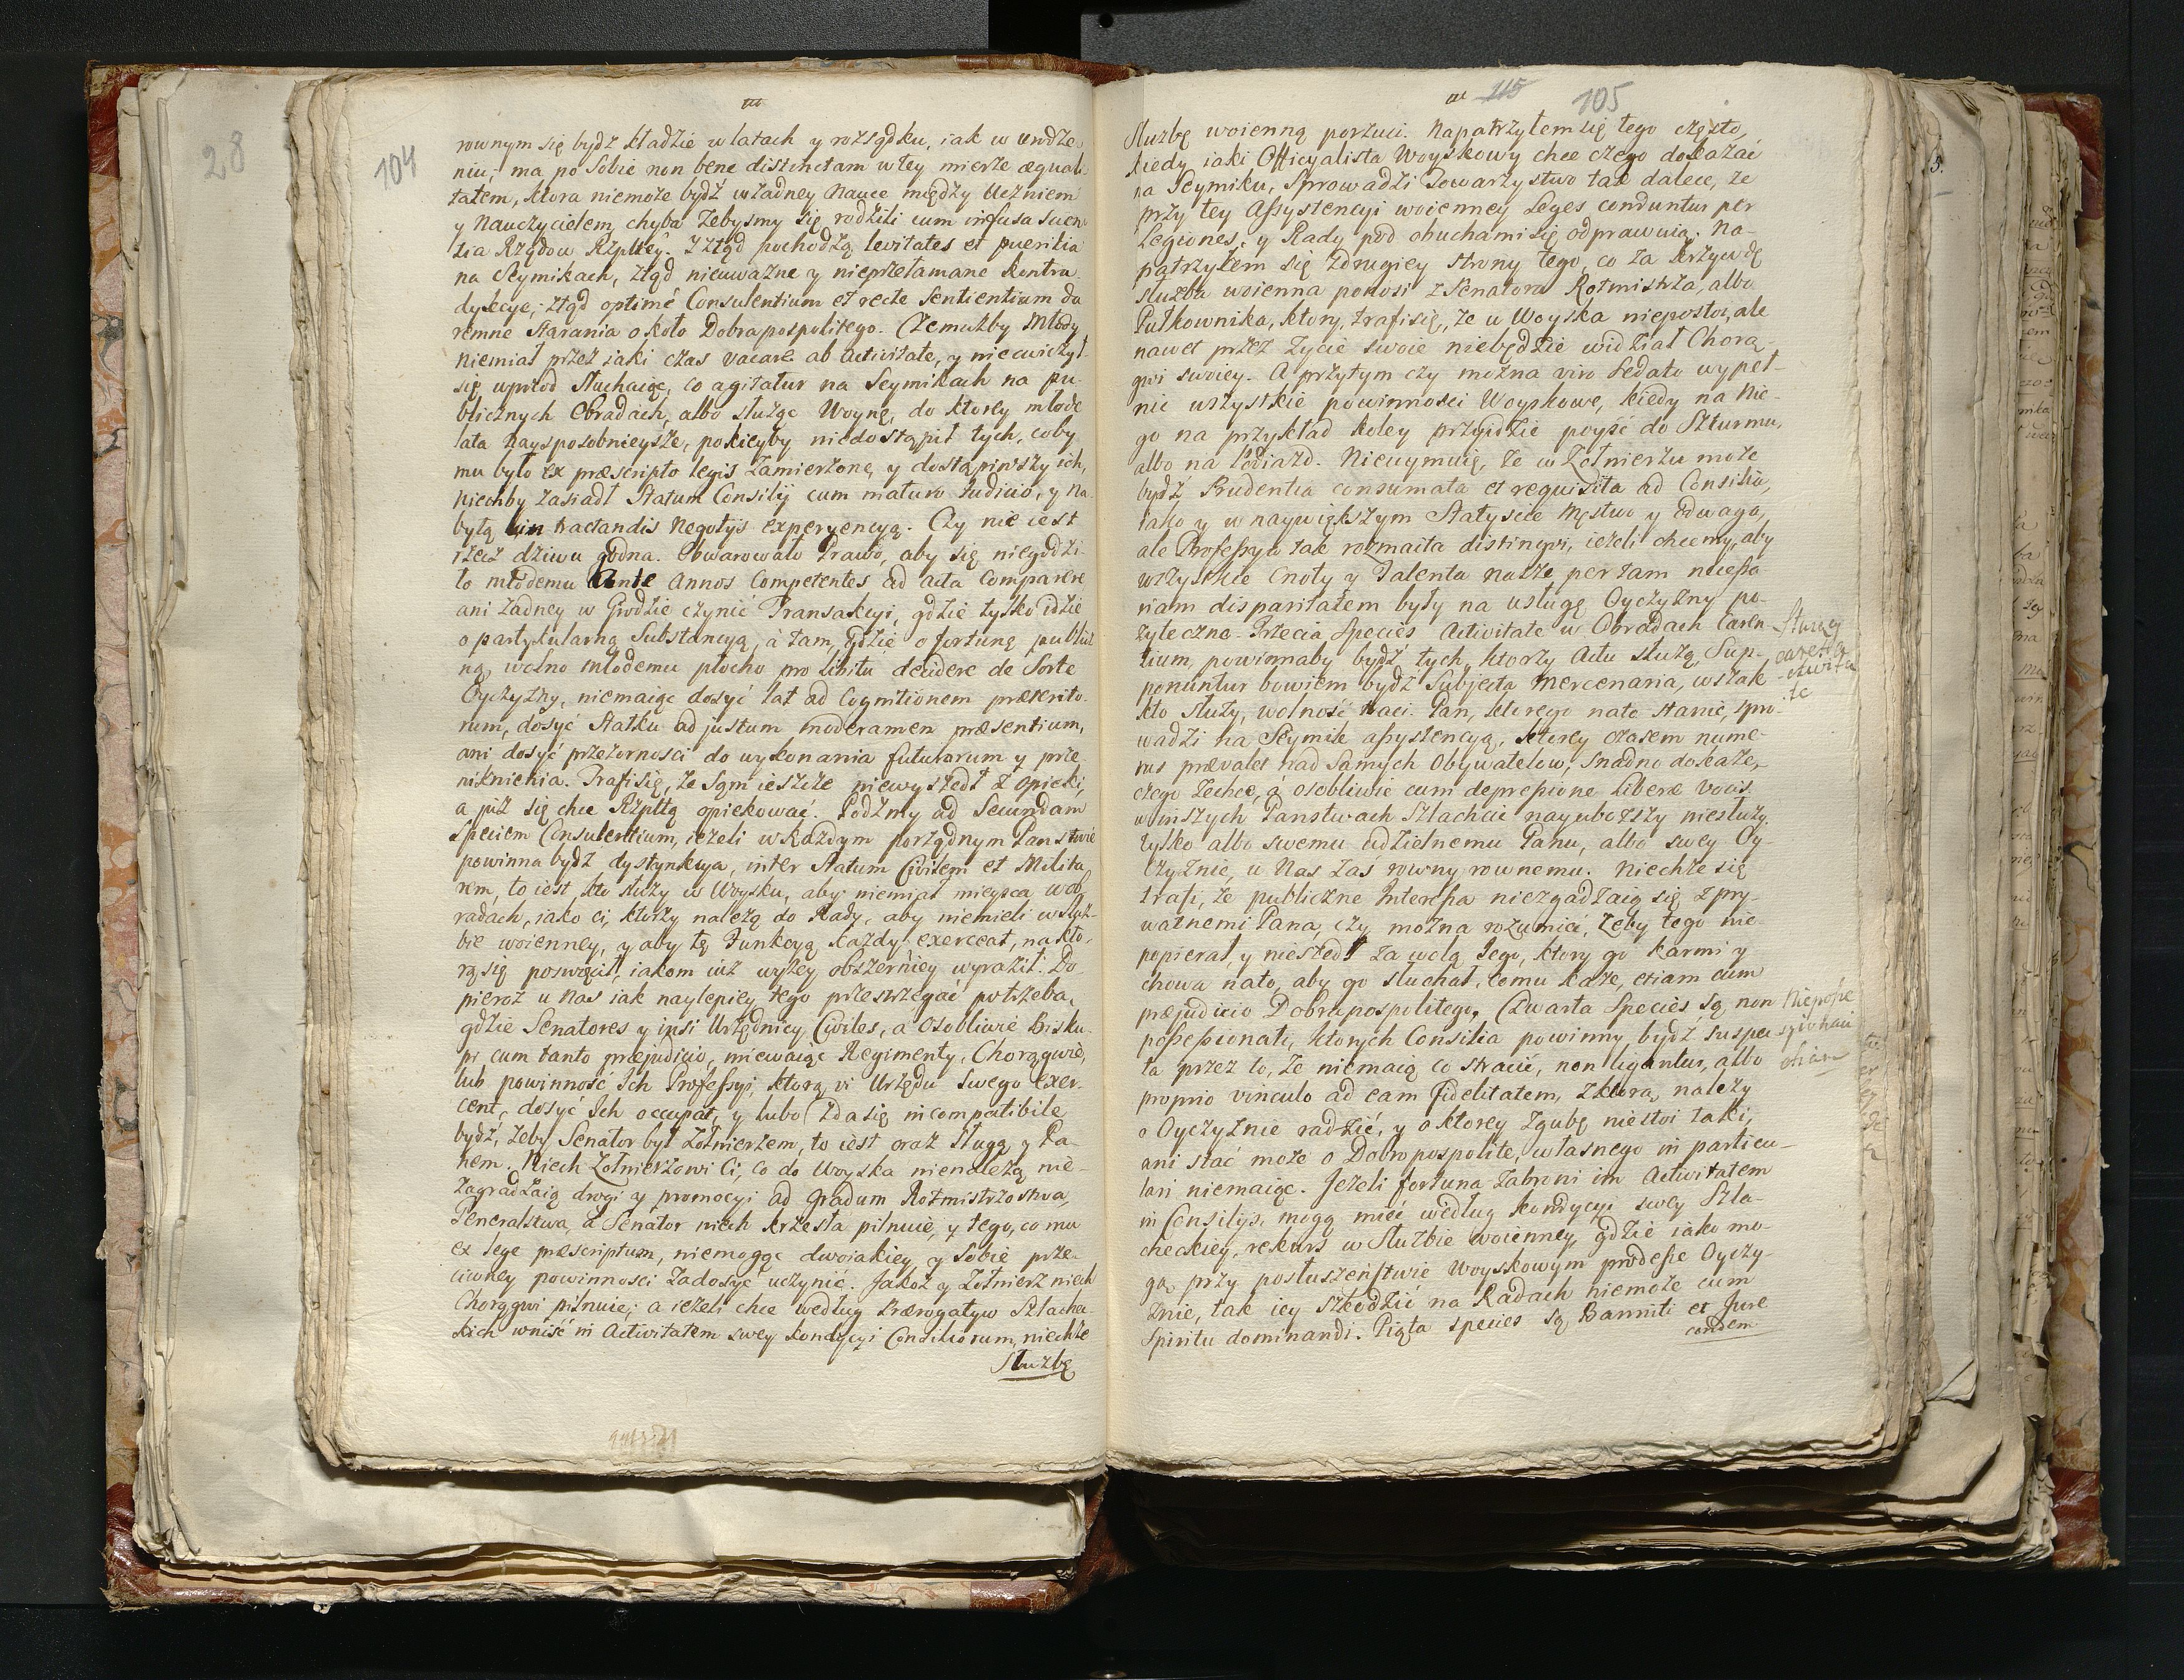 104
rownym się bydz kładzie w latach y rozsądku, iak w urodze-
niu; ma po sobie non bene distinctam w tey mierze æquali-
tatem, ktora niemoże bydź w żadney nauce między Uczniem
y Nauczycielem, chyba żebysmy się rodzili cum infusa scien-
tia Rządow Rzpltey. Z ztąd pochodzą levitates et puerilia
na Seymikach, ztąd nieuważne y nieprzełamane kontra-
dykcye; ztąd optimé Consulentium et recte Sentientium da
remne starania około Dobra pospolitego. Czemużby Młody
niemiał przez iaki czas vacare ab Activitate, y niecwiczył
się wprzod słuchaiąc, co agitatur na Seymikach na pu-
blicznych Obradach, albo służąc Woynę, do ktorey młode
lata nayposobnieysze, pokieyby niedostąpił tych, coby
mu było ex præscripto legis zamierzone, y dostąpiwszy ich,
niechby zasiadł Statum Consilij cum maturo Judicio, y na-
bytą in tractandis Negotijs experyencyą. Czy nie iest
rzecz dziwu godna. Obwarowało Prawo, aby się niegodzi-
ło młodemu Ante Annos Competentes ad acta Comparere
ani żadney w Grodzie czynić Transakcyi, gdzie tylko idzie
o partykularną Substancyą, à tam, gdzie o fortunę publicz
ną, wolno młodemu płocho pro libitu decidere de Sorte
Oyczyzny, niemaiąc dosyć lat ad Cognitionem præterito-
rum, dosyć statku ad justum moderamen præsentium,
ani dosyć przezornosci do wykonania futurorum y prze-
niknienia. Trafi się, że sąm ieszcze niewyszedł z opieki,
a już się chce Rzpltą opiekować. Podźmy ad Secundam
Speciem Consulentium, ieżeli w każdym porządnym Panstwie
powinna bydź dystynkcya, inter Statum Civilem et Milita-
rem, to iest, kto służy w Woysku, aby niemiał mieysca w ob-
radach, iako ci, ktorzy należą do Rady, aby niemieli w służ-
bie woienney, y aby tę Funkcyą każdy exerceat, na kto-
rą się poswięcił, iakom iuż wyżey obszerniey wyraził. Do-
pieroż u nas iak naylepiey tego przestrzegać potrzeba,
gdzie Senatores y insi Urzędnicy Civiles, a osobliwie Bisku-
pi cum tanto præjudicio, miewaiąc Regimenty, Chorągwie,
lub powinność Ich Professyi, ktorą vi Urzędu swego exer-
cent, dosyć Ich occupat, y lubo zda się incompatibile
bydź, żeby Senator był żołnierzem, to iest oraz sługą y Pa-
nem. Niech żołnierzowi Ci, co do Woyska nienależą nie-
zagradzaią drogi y promocyi ad gradum Rotmistrzostwa,
Generalstwa, à Senator niech krzesła pilnuie, y tego, co mu
ex lege præscriptum, niemogąc dwoiakiey y sobie prze-
ciwney powinnosci zadosyć uczynić. Jakoż y Zołnierz niech
Chorągwi pilnuie; a ieżeli chce według Prærogatyw Szlachec-
kich wniść in Activitatem swey kondycyi Consiliorum, niechże
Służbę
115 105
Służbę woienną porzuci. Napatrzyłem się tego często,
kiedy iaki Officyalista Woyskowy chce czego dokazać
na Seymiku, sprowadzi Towarzystwo tak dalece, że
przy tey Assystencyi woienney Leges conduntur per
Legiones, y Rady pod obuchami się odprawuią. Na-
patrzyłem się z drugiey strony tego, co za krzywdę
służba woienna ponosi z Senatora Rotmistrza, albo
Pułkownika, ktory, trafi się, że u Woyska niepostoi, ale
nawet przez życie swoie niebędzie widział Chorą-
gwi swoiey. A przytym czy można viro sedato wypeł-
nic wszystkie powinnosci Woyskowe, kiedy na nie-
go na przykład koley przyidzie poyść do Szturmu,
albo na Podiazd. Nieuymuię, że w Zołnierzu może
bydź Prudentia consumata et requisita ad Consilia,
iako y w naywiększym Statyscie męstwo y odwaga,
ale Professya tak rozmaita distingvi, ieżeli chcemy, aby
wszystkie cnoty y Talenta nasze per tam necessa-
riam disparitatem były na usługę Oyczyzny po-
żyteczne. Trzecia Species Activitate w Obradach Caren-
tium, powinnaby bydź tych, ktorzy Actu służą, Sup-
ponuntur bowiem bydź Subjecta mercenaria, wszak
kto służy, wolność traci. Pan, ktorego nato stanie, spro-
wadzi na Seymik assystencyą, ktorey czasem nume-
rus prævalet nad samych Obywatelow, snadno dokaże,
czego zechce, à osobliwie cum depressione liberæ vocis.
w inszych Panstwach Szlachcic nayuboższy niesłuży,
tylko albo swemu udzielnemu Panu, albo swey Oy-
czyznie, u Nas zaś rowny rownemu. Niechże się
trafi, że publiczne Interessa niezgadzaią się z pry-
watnemi Pana, czy można rozumieć, żeby tego nie-
popierał, y nieszedł za wolą tego, ktory go karmi y
chowa nato, aby go słuchał, czemu każe, etiam cum
præjudicio Dobra pospolitego. Czwarta Species są non
possessionati, ktorych Consilia powinny bydź suspec-
ta przez to, że niemaią co stracić, non ligantur, albo
proprio vinculo ad eam fidelitatem, z ktorą należy
o Oyczyznie radzić, y o ktorey zgubę niestoi taki,
ani stać może o Dobro pospolite, własnego in particu-
lari niemaiąc. Jeżeli fortuna zabroni im Activitatem
in Consilijs, mogą mieć według kondycyi swey Szla-
checkiey, rekurs w Służbie woienney, gdzie iako mo-
gą przy posłuszeństwie Woyskowym prodesse Oyczy-
znie, tak iey szkodzić na Radach niemoże cum
Spiritu dominandi. Piąta species są Banniti et Jure
28